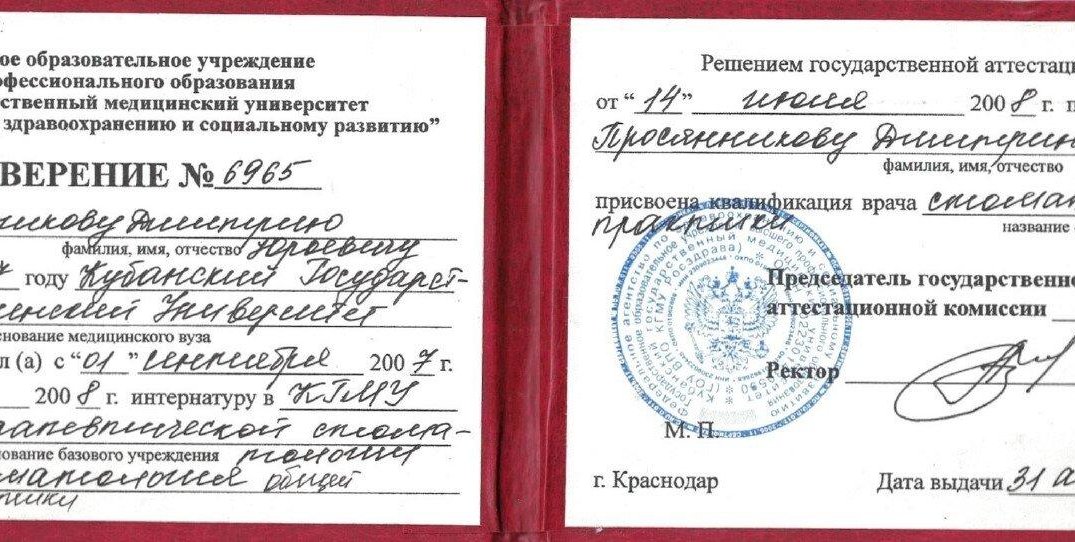 ое образовательное учреждение
офессионального образования
ственный медицинский университет
здравоохранению и социальному развитию”
ВЕРЕНИЕ № 6965
никову Дмитрию
фамилия, имя, отчество Юрьевичу
году Кубанский Государст-
инский Университет
нование медицинского вуза
л (а) с “01” сентября 2007 г.
2008 г. интернатуру в КГМУ
апевтической стома-
ование базового учреждения тологии
матология общей
тики
Решением государственной аттестац
от “14” июля 2008 г. п
Просянникову Дмитрию
фамилия, имя, отчество
присвоена квалификация врача стомат
практики
название
Председатель государственно
аттестационной комиссии
Ректор
М. П.
г. Краснодар
Дата выдачи 31 а